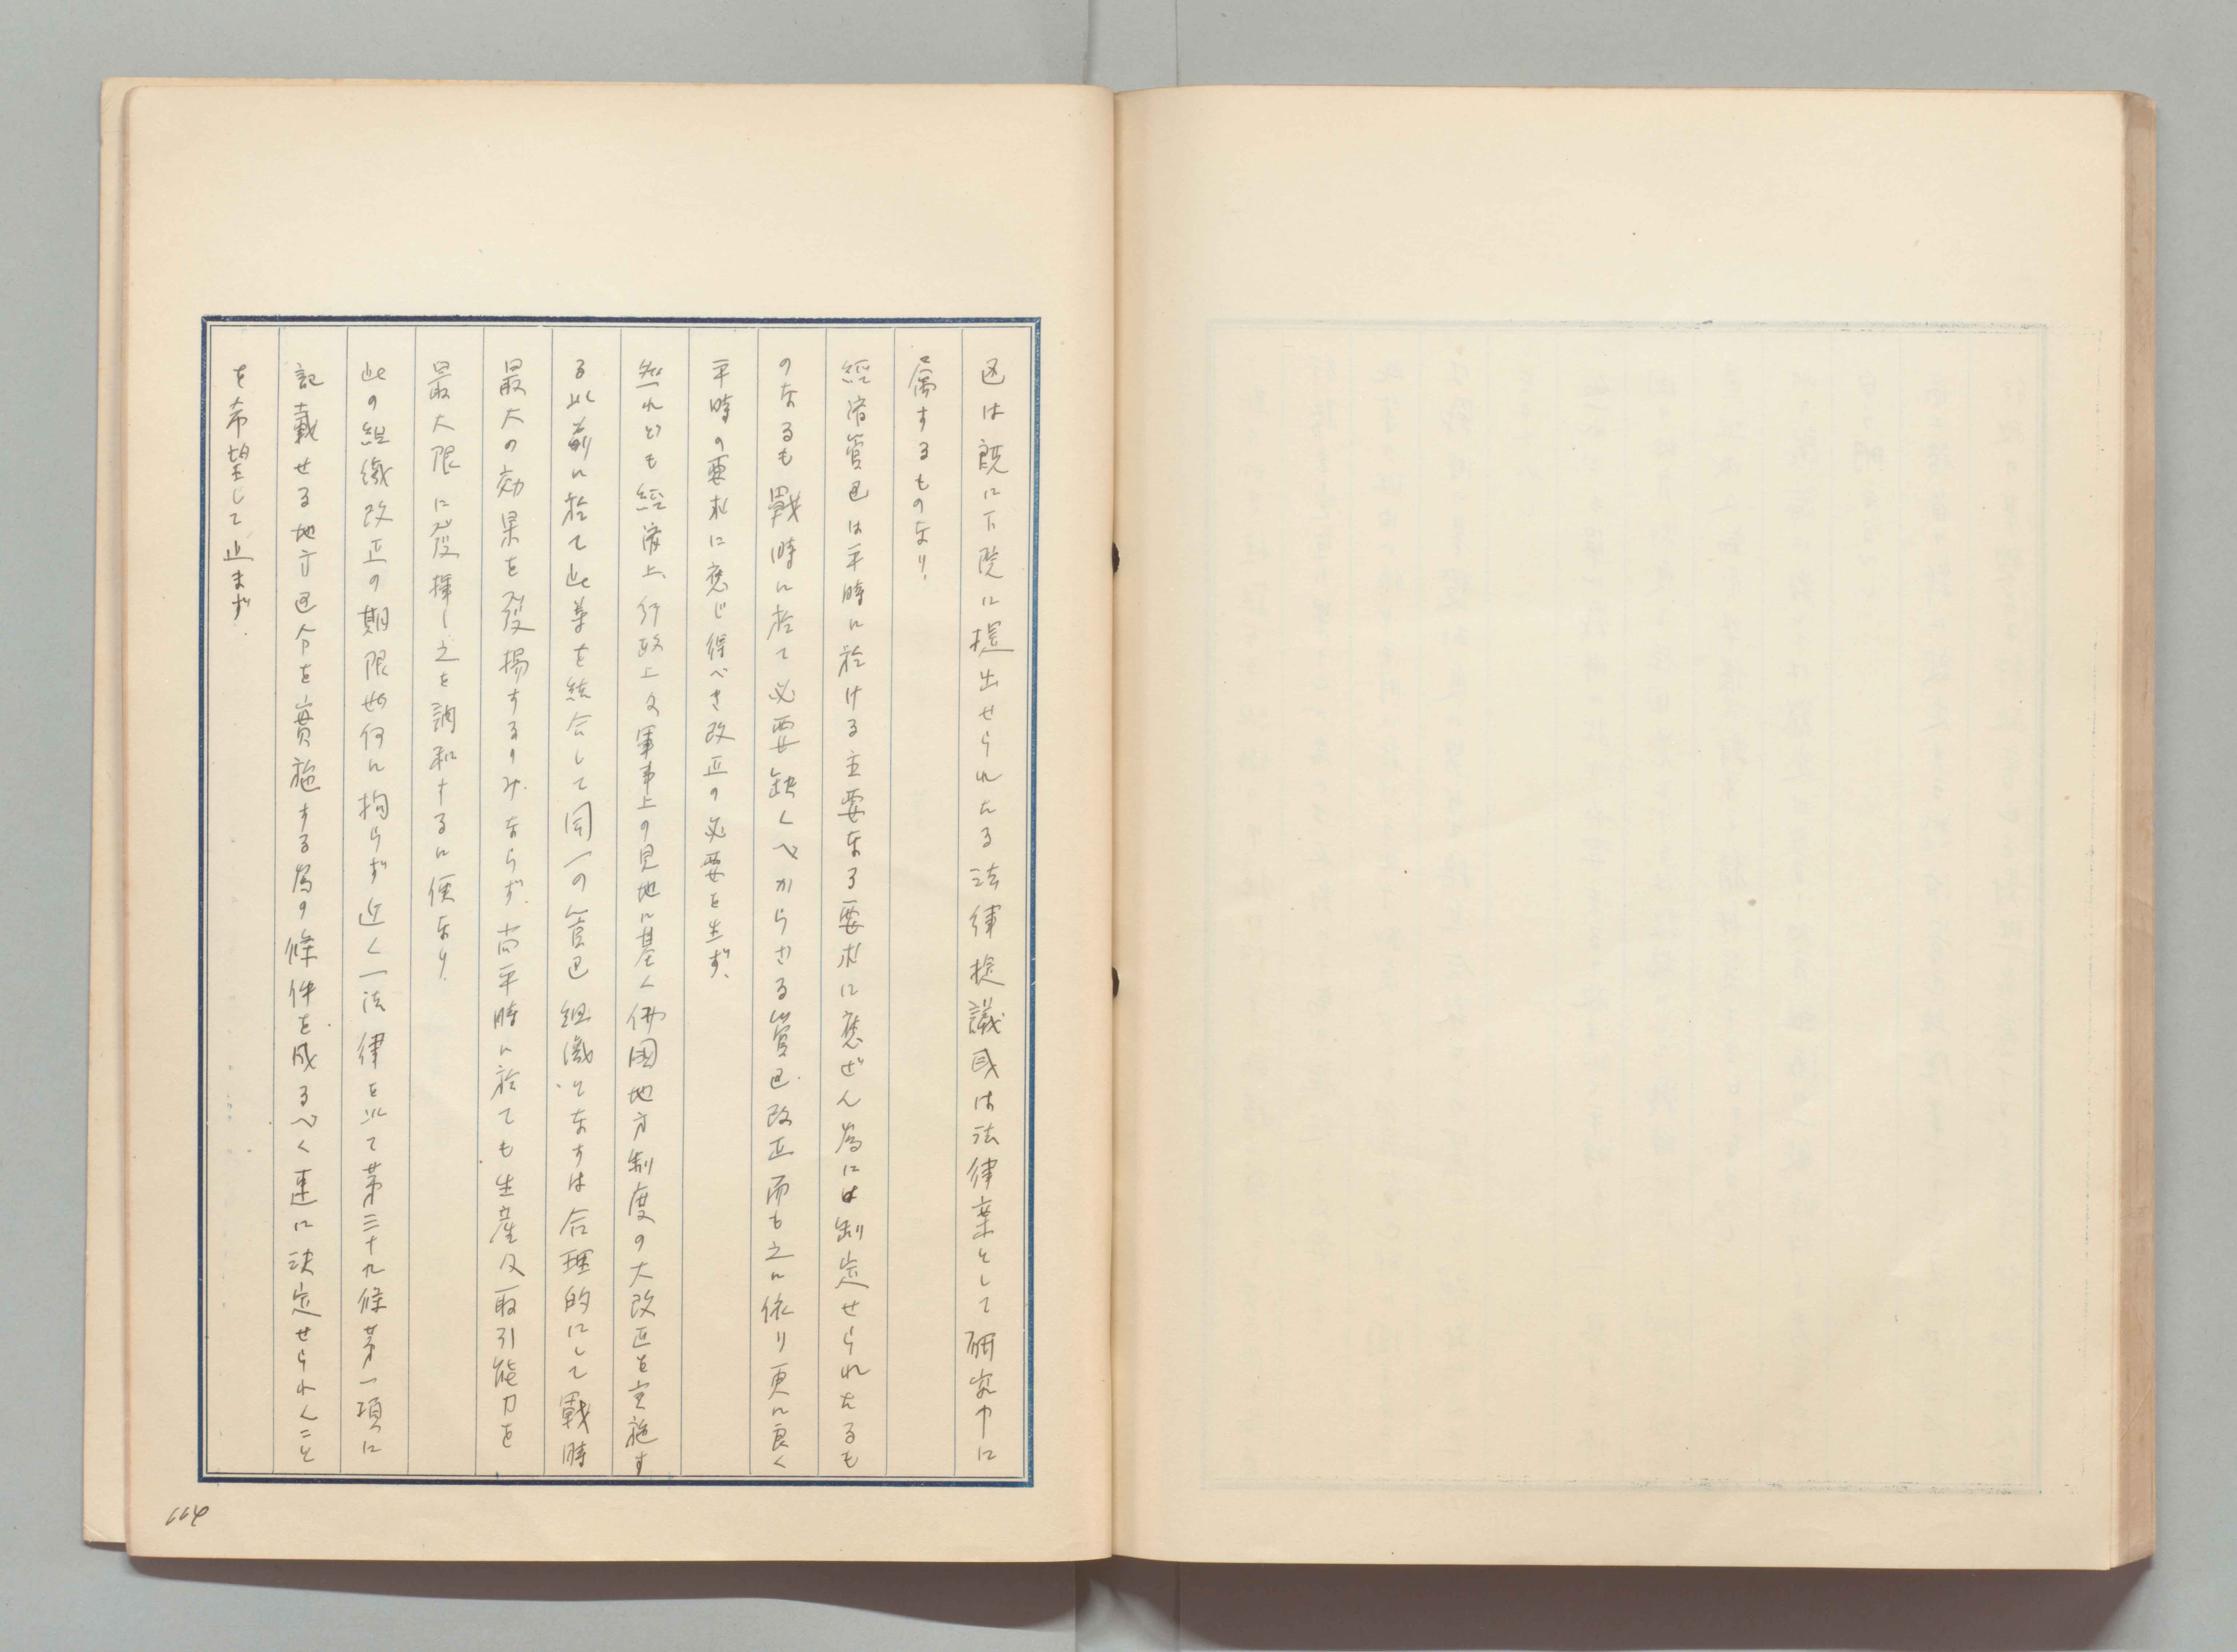 区は既に下院に提出せられたる法律提議或は法律案として研究中に
屬するものなり.
経済管区は平時に於ける主要なる要求に應ぜん為には制定せられたるも
のなるも戰時に於て必要缺くべからさる管区改正而も之に依り更に良く
平時の要求に應じ得べき改正の必要を生ず、
然れども経済上、行政上及軍事上の見地に基く佛國地方制度の大改正を実施す
る以前に於て此等を統合して同一の管区組織となすは合理的にして戰時
最大の効果を發揚するのみならず尚平時に於ても生産及取引能力を
最大限に發揮し之を調和するに便なり.
此の組織改正の期限如何に拘らず近く一法律を以て第三十九條第一項に
記載せる地方区分を實施する為の條件を成るべく速に決定せられんこと
を希望して止まず.
114